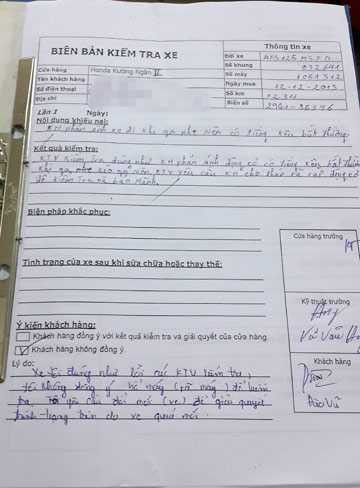 BIÊN BẢN KIỂM TRA XE
Thông tin xe
Cửa hàng
Honda Kường Ngân II
Tên khách hàng
Số điện thoại
Địa chỉ
Đời xe
Số khung
032641
Số máy
Ngày mua
12-02-2015
Số km
Biển số
Lần 1
Ngày:
Nội dung khiếu nại:
KH phản ánh xe đi khi ga nhẹ máy có tiếng kêu bất thường
Kết quả kiểm tra:
KTV kiểm tra đúng như KH phản ánh động cơ có tiếng kêu bất thường
KTV yêu cầu KH cho tháo rã động cơ
để kiểm tra và bảo hành
Biện pháp khắc phục:
Tình trạng của xe sau khi sửa chữa hoặc thay thế:
Ý kiến khách hàng:
Khách hàng đồng ý với kết quả kiểm tra và giải quyết của cửa hàng.
Khách hàng không đồng ý
Lý do:
Xe tôi đúng như lỗi của KTV kiểm tra,
tôi không đồng ý bổ máy (rã máy) để kiểm
tra, tôi yêu cầu đổi mới (xe) để giải quyết
tình trạng trên do xe quá mới.
Cửa hàng trưởng
Kỹ thuật trưởng
Khách hàng